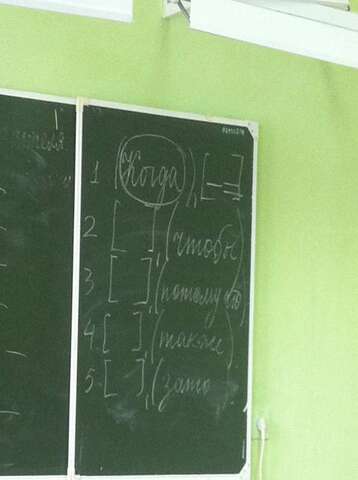 1 (Когда), [ ]
2 [ ], (чтобы)
3 [ ], (потому что)
4. [ ], (также)
5. [ ], (зато